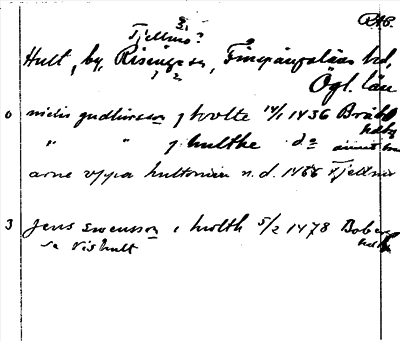 RAP.
Tjellmo?
Hult, by, Risinge sn, Finspångaläns hd,
Ögl. län
0 nielis gudlinsson j hwlte 14/1 1436 Bråbo
hdbg
" " j hulthe do
arne uppa hultomin n.d. 1466 Tjellmo
3 Jens swensson i hwlth 5/2 1478 Boberg
se Vishult